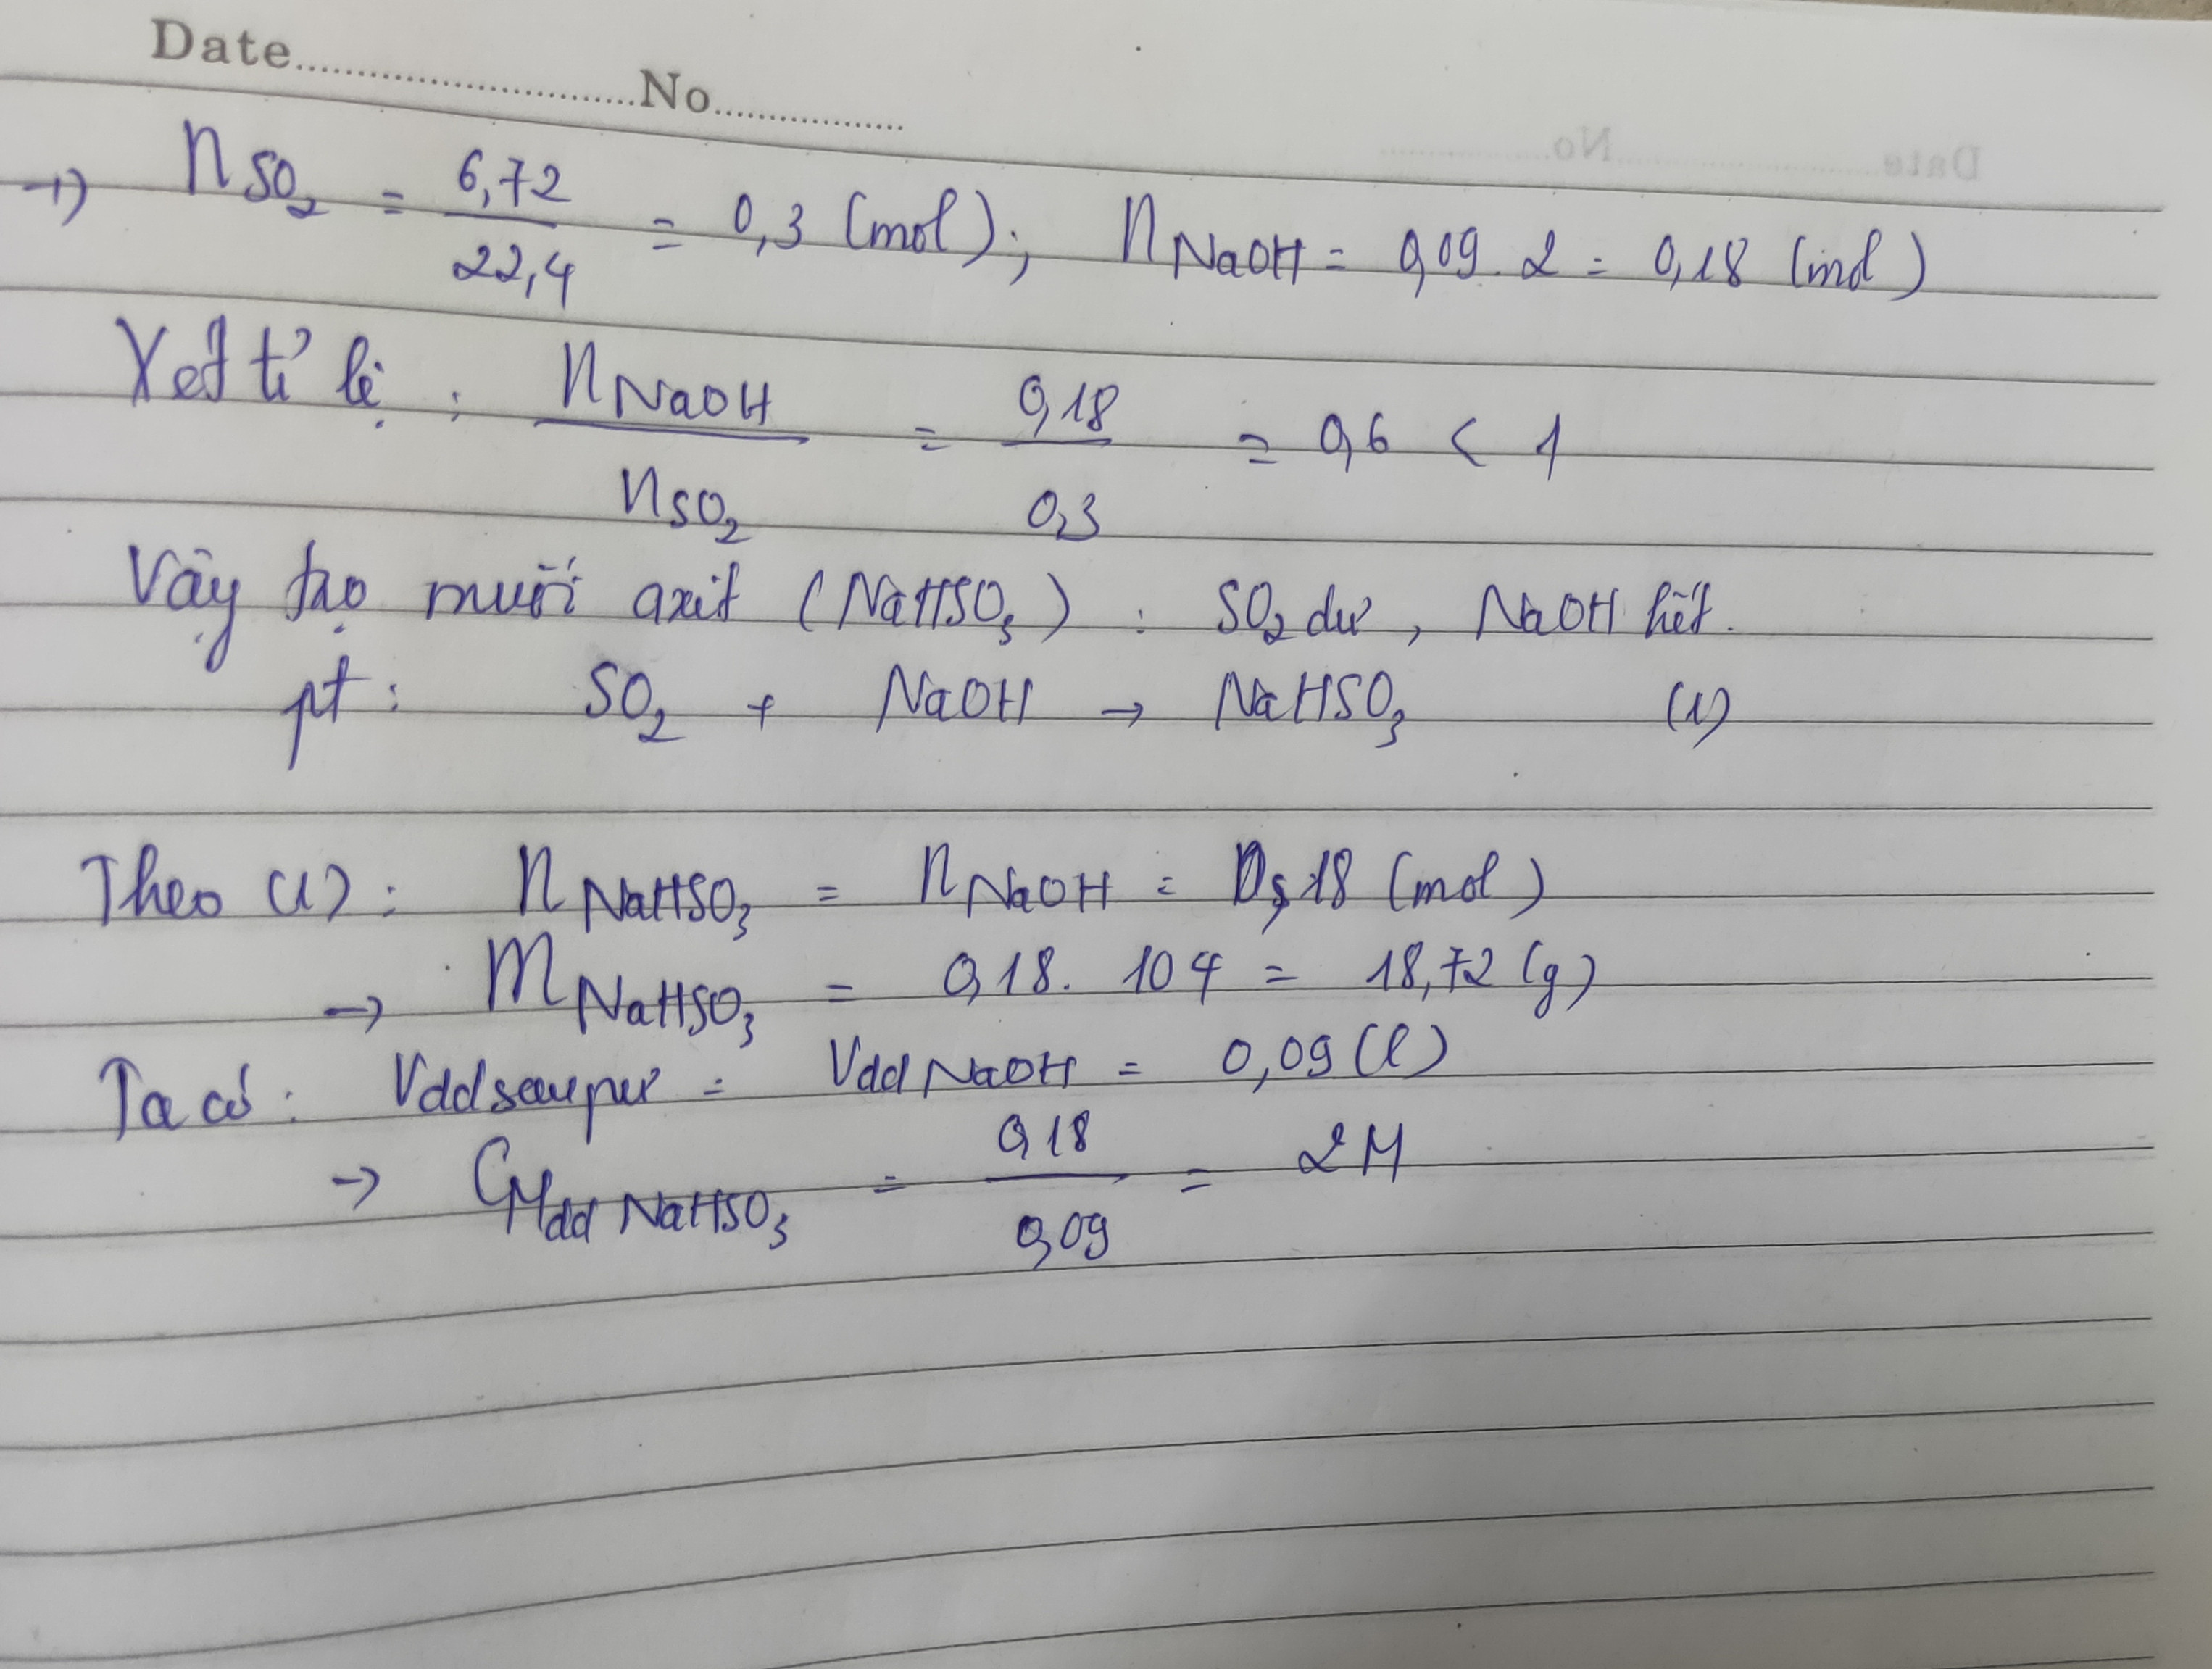 Date..............................No.................
→) nSO₂ = 6,72 / 22,4 = 0,3 (mol); nNaOH = 0,09. 2 = 0,18 (mol)
Xét tỉ lệ : nNaOH / nSO₂ = 0,18 / 0,3 = 0,6 < 1
Vậy tạo muối axit (NaHSO₃) : SO₂ dư, NaOH hết.
pt : SO₂ + NaOH → NaHSO₃ (1)
Theo (1) : nNaHSO₃ = nNaOH = 0,18 (mol)
→ mNaHSO₃ = 0,18. 104 = 18,72 (g)
Ta có : Vdd sau pư = Vdd NaOH = 0,09 (l)
→ CMdd NaHSO₃ = 0,18 / 0,09 = 2M